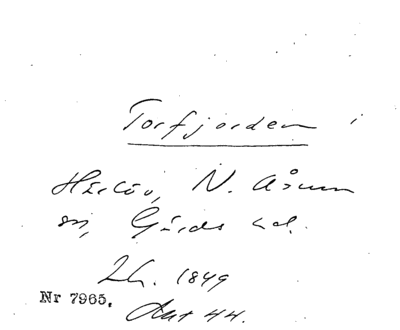 Torfjorden i
Härlöv, N. Åsum
sn, Gärds hd.
Lh. 1849
Nr 7965.
Akt 44.